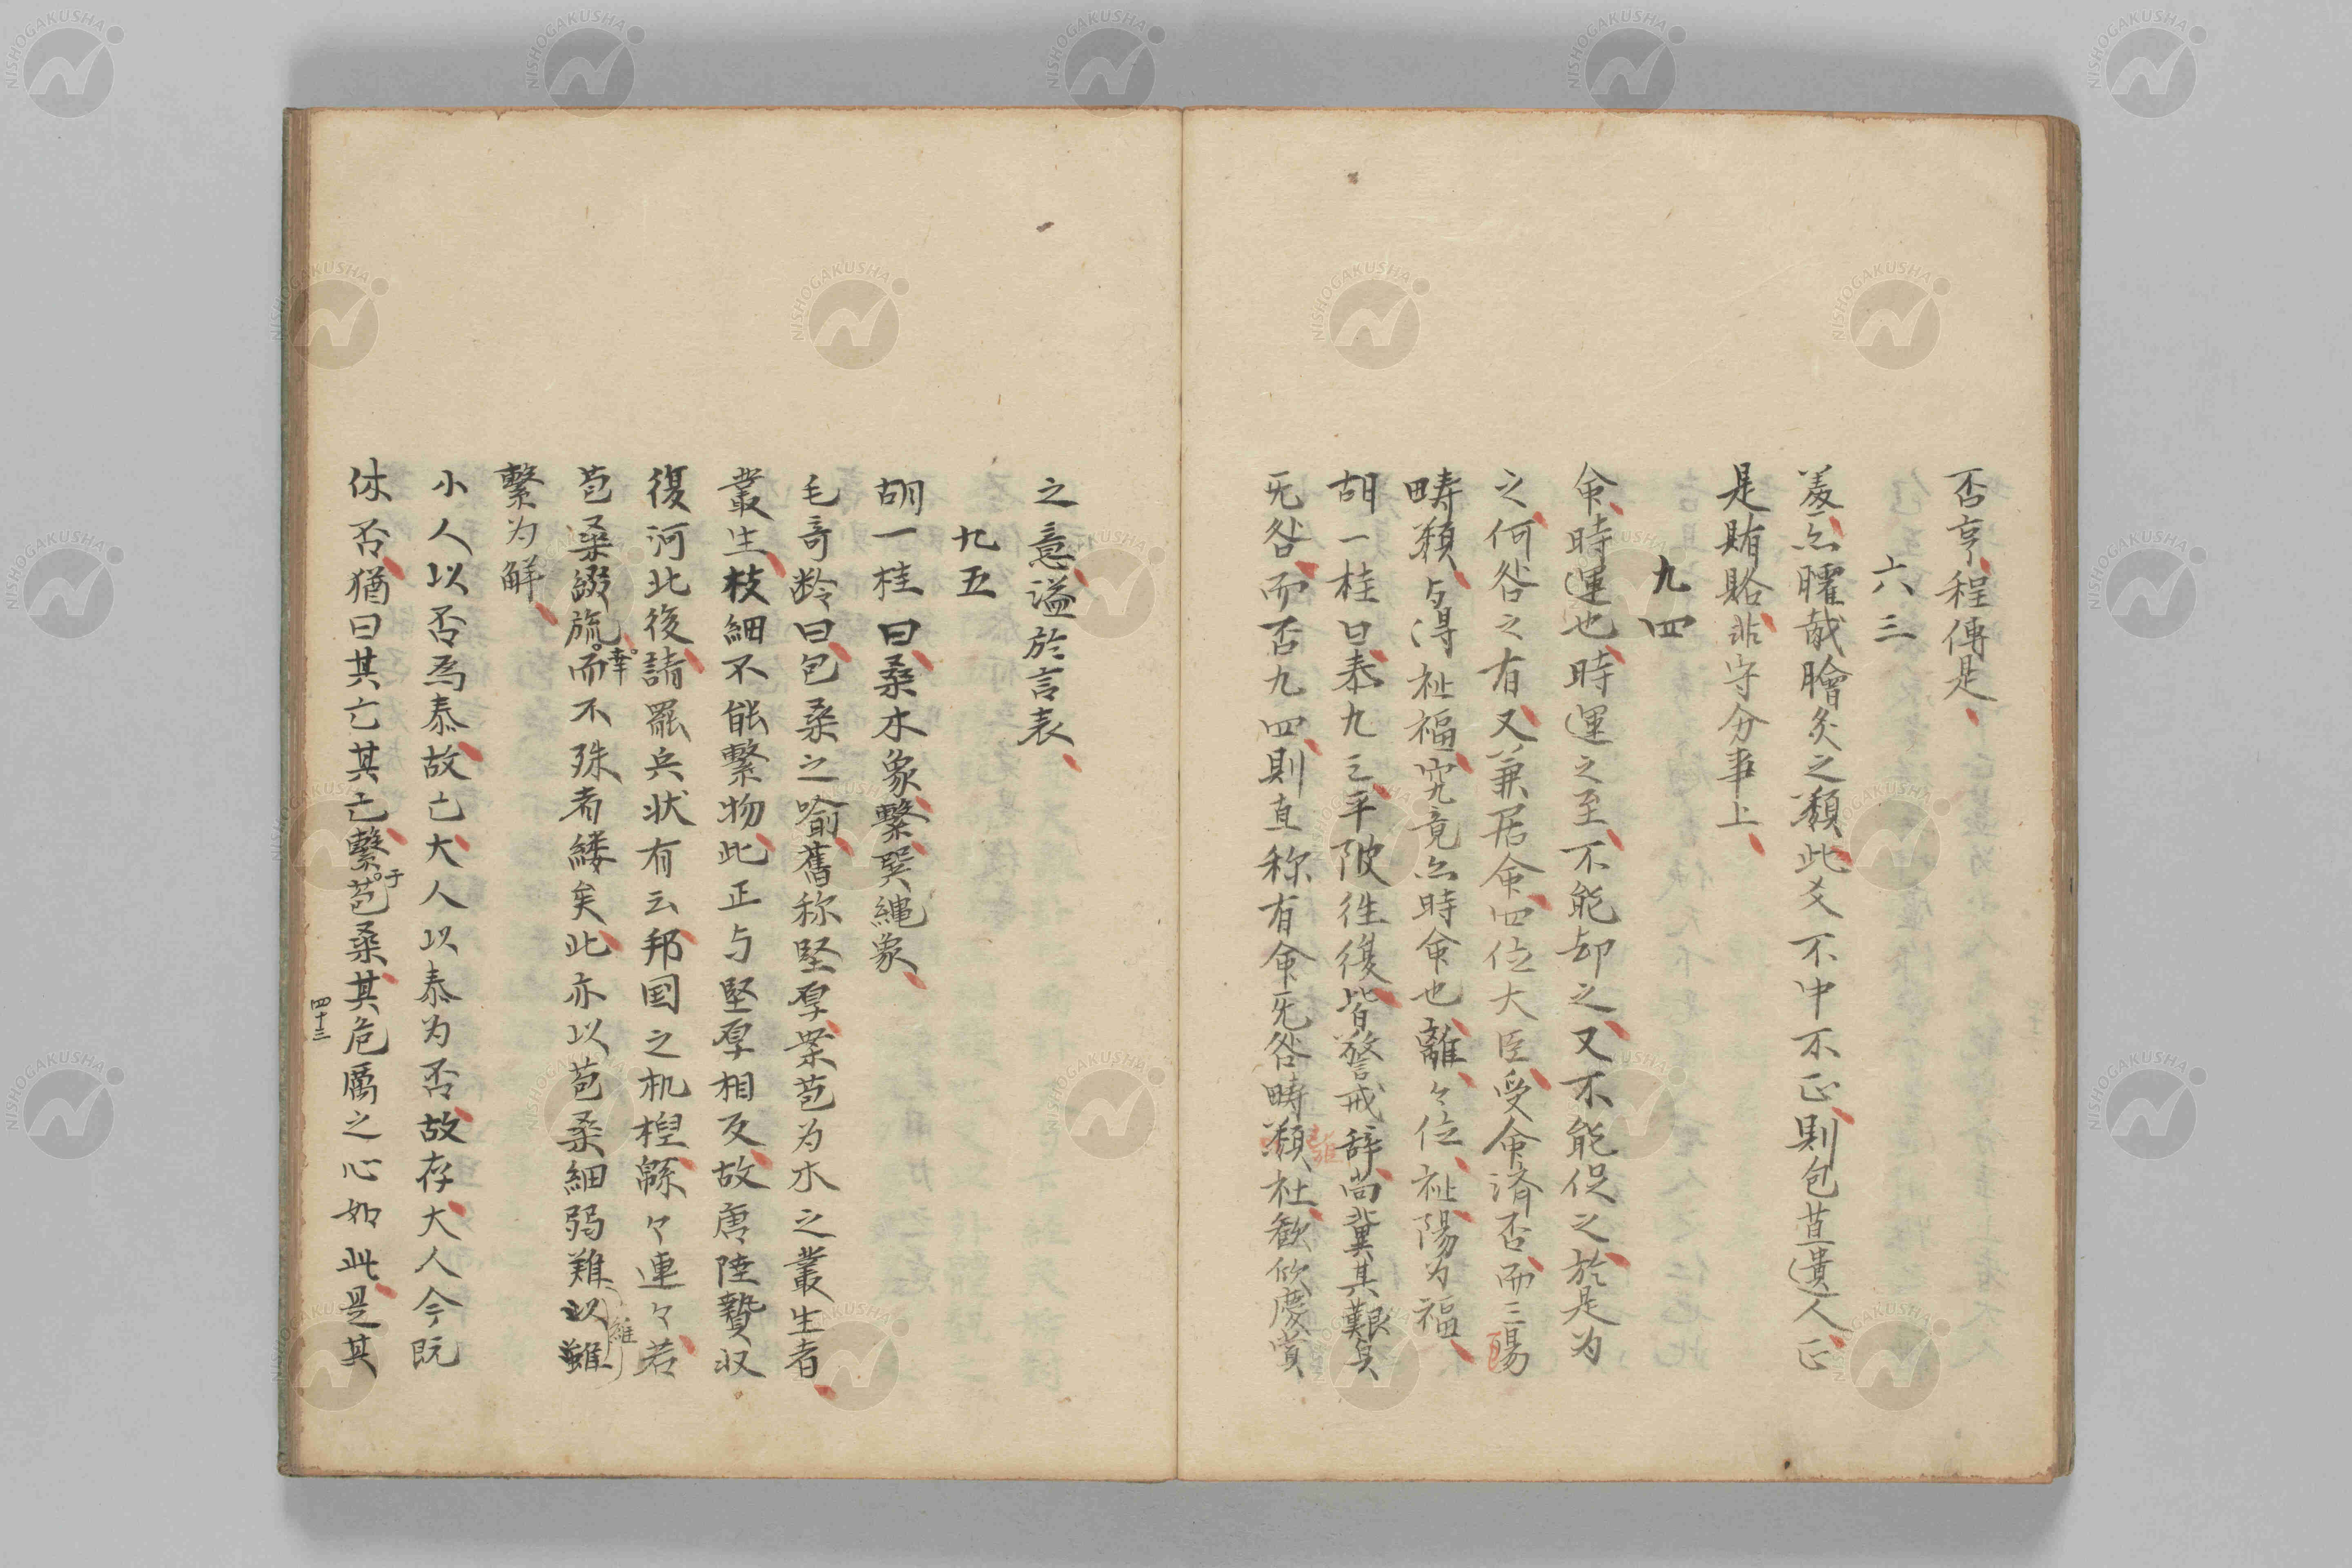 否亨程傳是
六三
羞亦臛胾膾炙之類此爻不中不正則包苴遺人正
是賄賂非守分事上
九四
命時運也時運之至不能却之又不能促之於是为
之何咎之有又兼居命四位大臣受命済否而三陽
疇類与得祉福究竟亦時命也離々位祉陽为福
胡一桂曰泰九三平陂徃復皆警戒辞尚冀其艱貞
无咎而否九四則直称有命无咎疇類祉歓欣慶賞
離
之意溢於言表
九五
胡一桂曰桑木象繫巽縄象
毛竒齡曰包桑之喻舊称堅厚案苞为木之叢生者
叢生枝細不能繫物此正与堅厚相反故唐陸贄収
復河北後請罷兵状有云邦国之杌棿緜々連々若
苞桑綴旒而不殊者緩矣此亦以苞桑細弱難以雖
幸
維
繫为解
小人以否為泰故亡大人以泰为否故存大人今既
休否猶曰其亡其亡繫苞桑其危厲之心如此是其
于
四十三